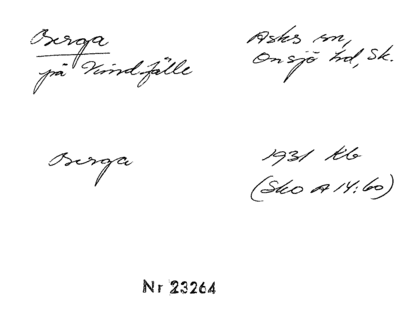 Berga
på Vindfälle
Asks sn,
Onsjö hd, Sk.
Berga
1931 Kb
(Sko A 14:60)
Nr 23264